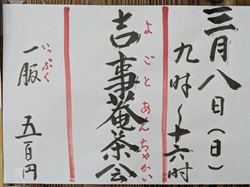 三月八日(日)
九時～十六時
よごとあんちゃかい
吉事菴茶会
いっぷく
一服 五百円